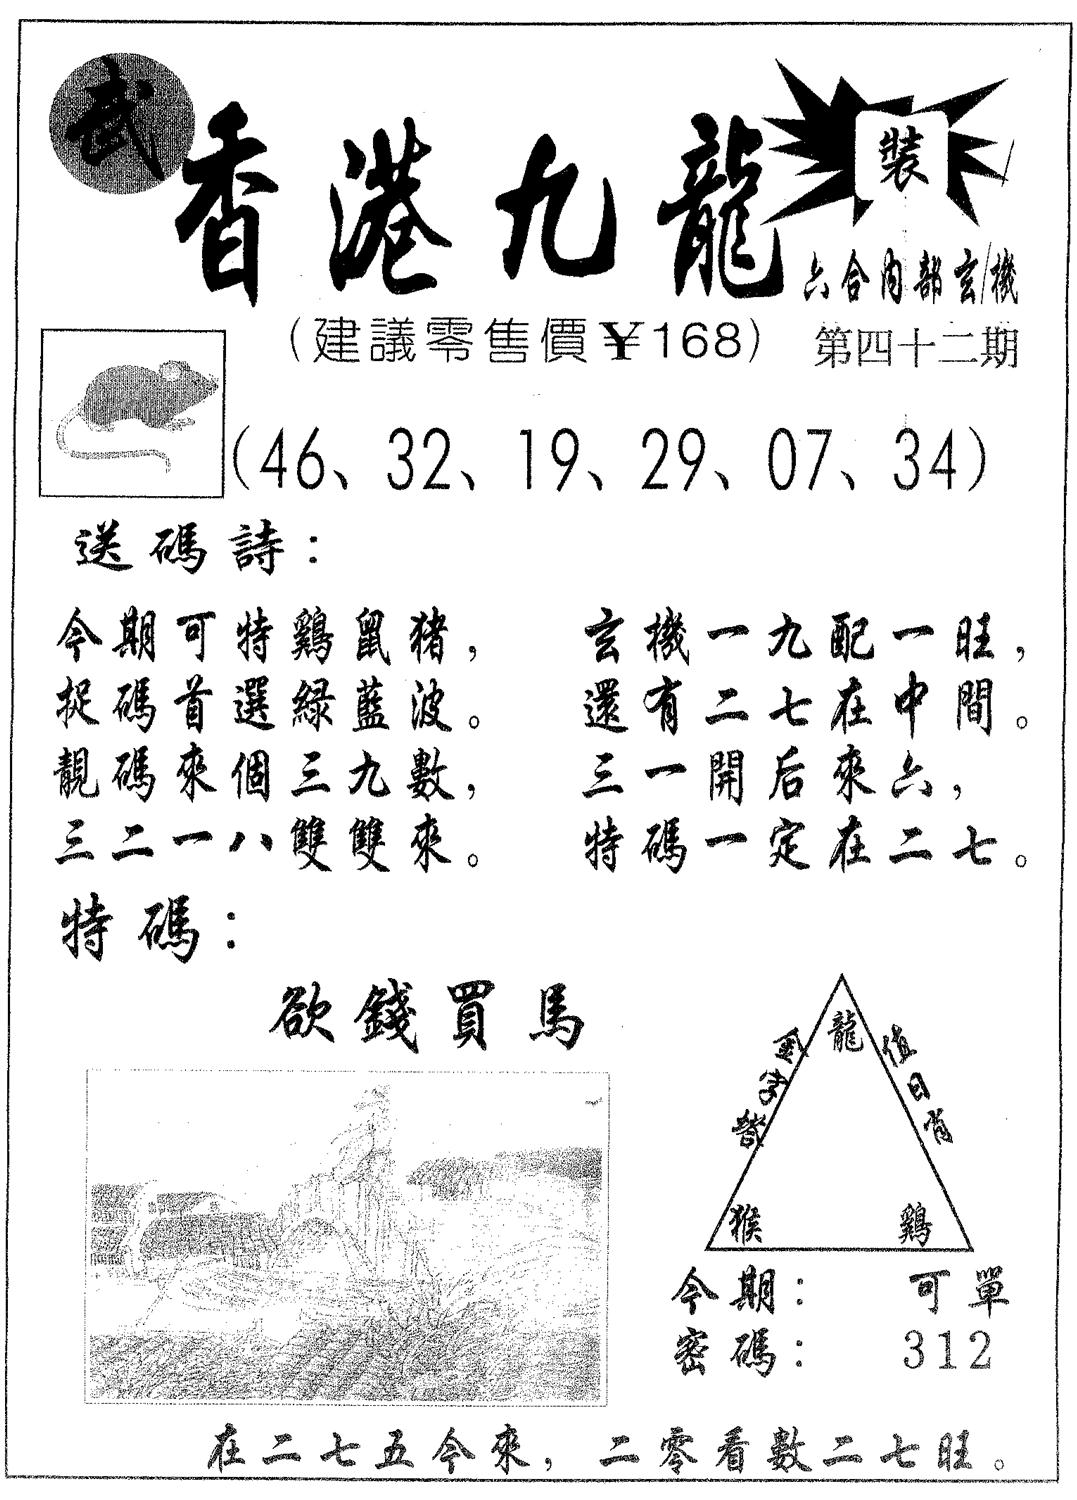 武
香港九龍
裝
六合內部玄機
（建議零售價¥168）
第四十二期
（46、32、19、29、07、34）
送碼詩：
今期可特鷄鼠猪，
捉碼首選綠藍波。
靚碼來個三九數，
三二一八雙雙來。
玄機一九配一旺，
還有二七在中間。
三一開后來六，
特碼一定在二七。
特碼：
欲錢買馬
龍
值日肖
金字塔
猴
鷄
今期：可單
密碼：312
在二七五今來，二零看數二七旺。